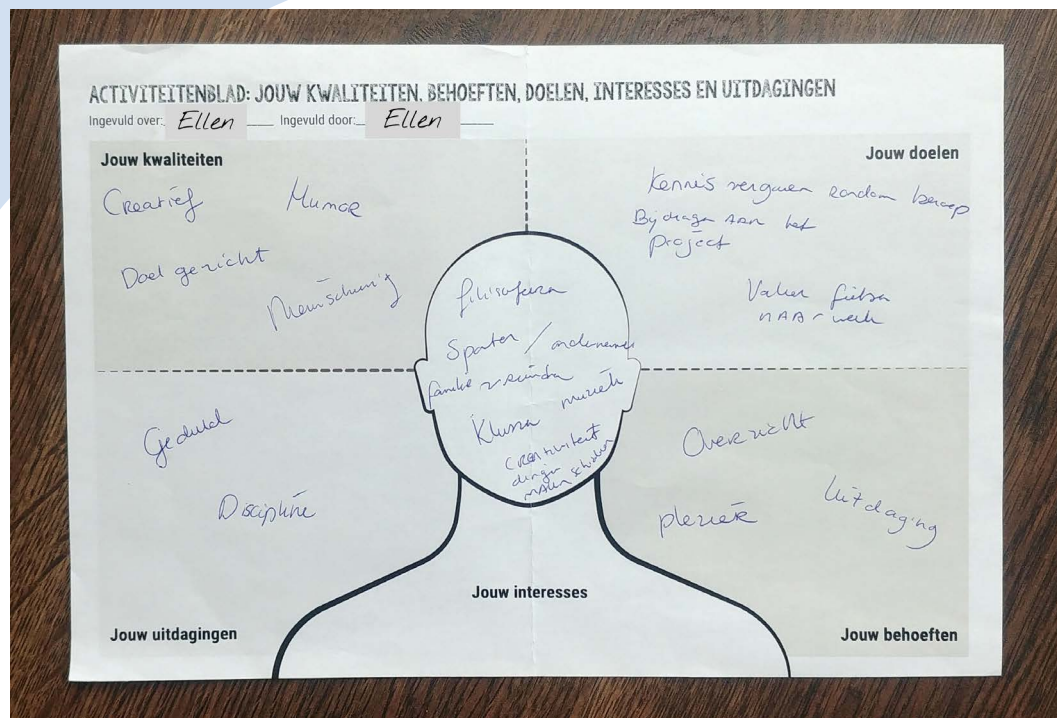 ACTIVITEITENBLAD: JOUW KWALITEITEN, BEHOEFTEN, DOELEN, INTERESSES EN UITDAGINGEN
Ingevuld over: Ellen Ingevuld door: Ellen
Jouw kwaliteiten
Creatief Humor
Doel gericht
Jouw doelen
Kennis rondom beroep
Bijdragen aan het
project
Vaker fietsen
naar werk
filosoferen
Sporten / ondernemen
familie vrienden
muziek
Klussen
creativiteit
dingen
maken
Jouw interesses
Geduld
Discipline
Jouw uitdagingen
Overzicht
Uitdaging
plezier
Jouw behoeften